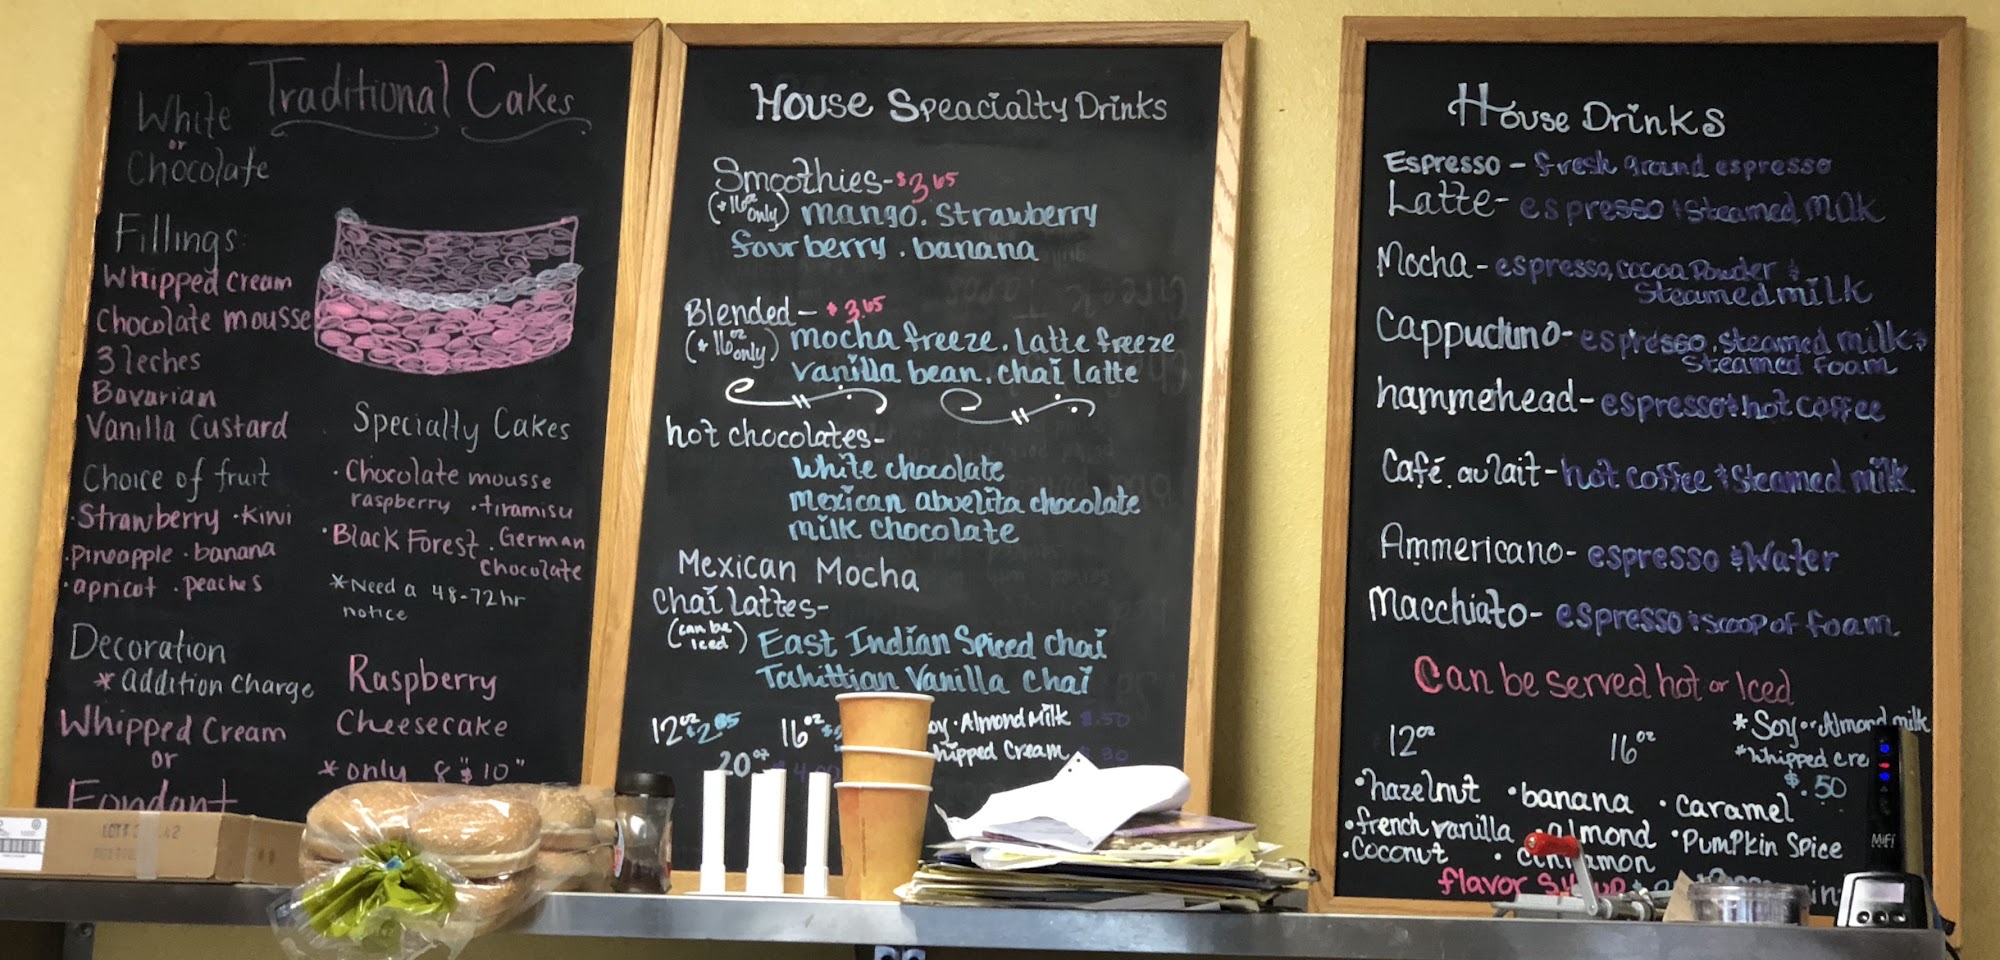 Traditional Cakes
White
or
Chocolate
Fillings:
Whipped Cream
Chocolate mousse
3 leches
Bavarian
Vanilla Custard
Choice of fruit
· Strawberry · Kiwi
· pineapple · banana
· apricot . peaches
Decoration
* addition Charge
Whipped Cream
or
Fondant
Specialty Cakes
· Chocolate mousse
raspberry · tiramisu
· Black Forest . German
chocolate
* Need a 48-72hr
notice
Raspberry
Cheesecake
* only 8" & 10"
House Speacialty Drinks
Smoothies - $3.65
(*16oz only) mango. Strawberry
four berry . banana
Blended - $3.65
(*16oz only) mocha freeze . Latte freeze
vanilla bean . chai latte
hot chocolates -
white chocolate
mexican abuelita chocolate
milk chocolate
Mexican Mocha
Chai lattes -
(can be iced) East Indian Spiced chai
Tahittian Vanilla Chai
12oz 16oz
20oz
Almond Milk $.50
Cream
House Drinks
Espresso - fresh ground espresso
Latte - espresso & steamed milk
Mocha - espresso, cocoa Powder &
Steamed milk
Cappuccino - espresso, steamed milk &
Steamed foam
hammerhead - espresso & hot coffee
Café au lait - hot coffee & Steamed milk
Ammericano - espresso & Water
Macchiato - espresso & scoop of foam
Can be served hot or Iced
12oz 16oz
* Soy or Almond milk
* Whipped Cre
$.50
· hazelnut · banana · caramel
· french vanilla · almond · Pumpkin Spice
· coconut · cinnamon
flavor
MiFi